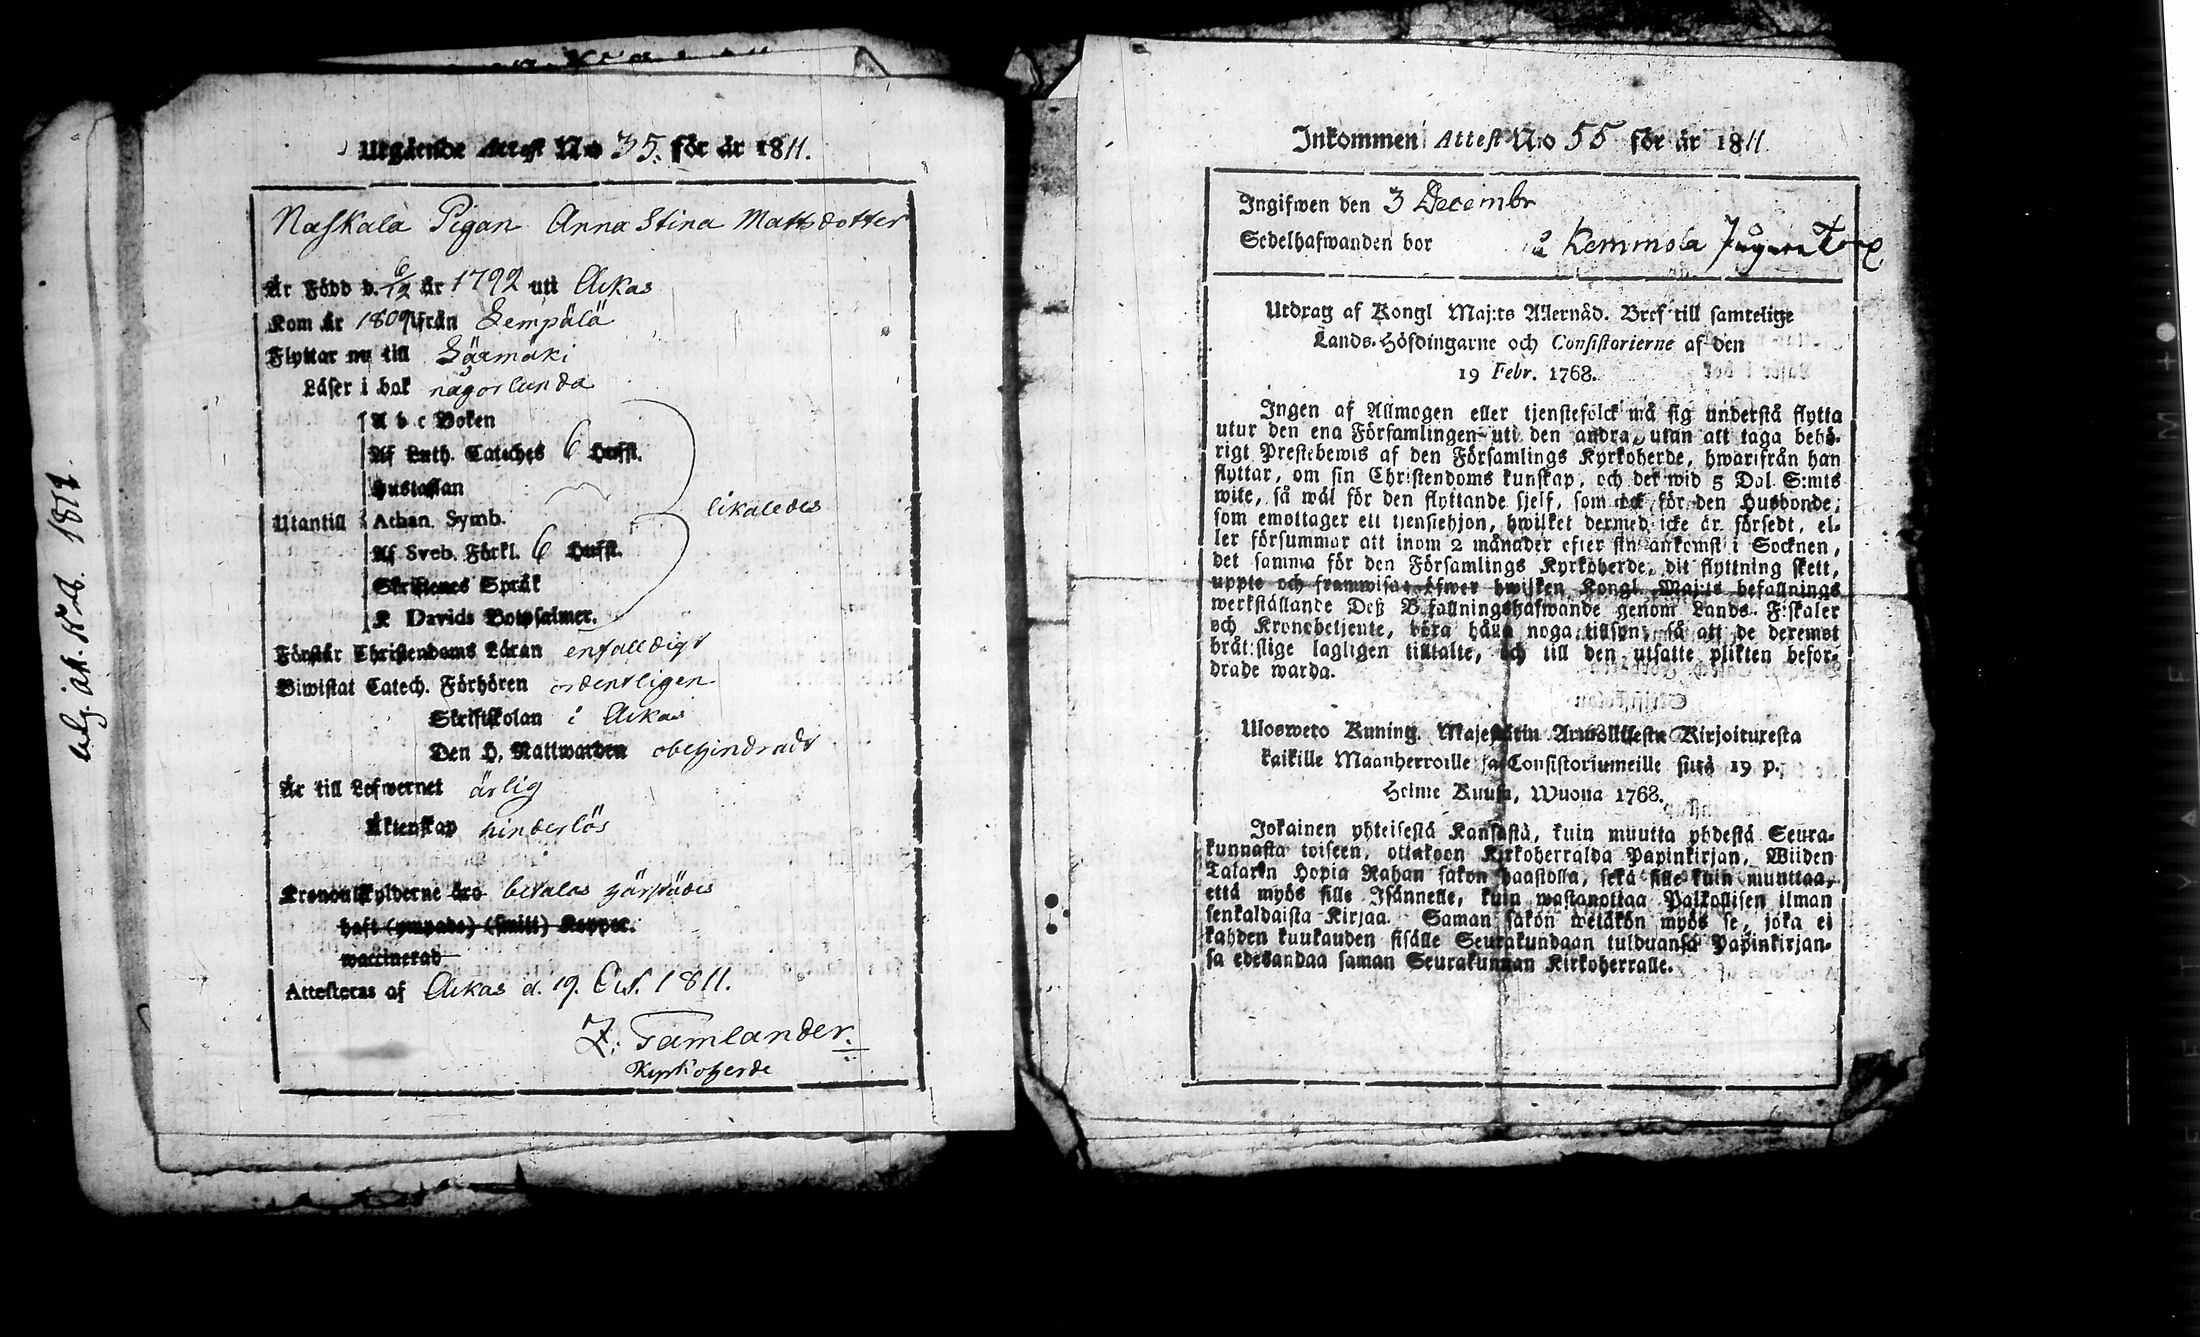 Utgående Attest No 35. för år 1811.
Naskala Pigan Anna Stina Mattsdotter
Är Född d. 6/12 år 1792 uti Ackas
Kom år 1809 ifrån Lempälä
Flyttar nu till Särmäki
Läser i bok någorlunda
A b c Boken
Af Luth. Cateches 6 Hufst.
Hustaflan
likaledes
Utantill Athan. Symb.
Af Sveb. Förkl. 6 Hufst.
Skriftenes Språk
K Davids Botpsalmer.
Förstår Christendoms Läran enfalldigt
Biwistat Catech. Förhören ordentligen
Skriftskolan i Ackas
Den H. Nattwarden obehindradt
Är till Lefwernet ärlig
Äktenskap hinderlös
Kronoutskylderne äro betalas härstädes
haft (ympade) (smitt) Koppor.
waccinerad
Attesteras af Ackas d. 19. Oct. 1811.
Z. Tamlander.
Kyrkoherde
Inkommen Attest No 55 för år 1811.
Ingifwen den 3 Decembr
Sedelhafwanden bor på Kemmola
Utdrag af Kongl Maj:ts Allernåd. Bref till samtelige
Lands-Höfdingarne och Consistorierne af den
19 Febr. 1768.
Ingen af Allmogen eller tjenstefolck må sig understå flytta
utur den ena Församlingen uti den andra, utan att taga behö-
rigt Prestebewis af den Församlings Kyrkoherde, hwarifrån han
flyttar, om sin Christendoms kunskap, och det wid 5 Dal S:mts
wite, så wäl för den flyttande sjelf, som ock för den Husbonde,
som emottager ett tjenstehjon, hwilket dermed icke är försedt, el-
ler försummar att inom 2 månader efter sin ankomst i Socknen,
det samma för den Församlings Kyrkoherde, dit flyttning skett,
uppte och framwisa; öfwer hwilken Kongl. Maj:ts befallnings
werkställande Deß Befallningshafwande genom Lands-Fiskaler
och Kronobetjente, böra hålla noga tillsyn, så att de deremot
bråtslige lagligen tilltalte, och till den utsatte plikten befor-
drade warda.
Ulosweto Kuning. Majestetin Armollisesta Kirjoituxesta
kaikille Maanherroille ja Consistoriumeille siitä 19 p.
Helme Kuusa, Wuona 1768.
Jokainen yhteisestä Kansasta, kuin muutta yhdestä Seura-
kunnasta toiseen, ottakoon Kirkoherralda Papinkirjan, Wiiden
Talarin Hopia Rahan sakon haastolla, sekä sille kuin muuttaa,
että myös sille Isännelle, kuin wastanottaa Palkollisen ilman
senkaldaista Kirjaa. Saman sakon wetäkön myös se, joka ei
kahden kuukauden sisälle Seurakundaan tulduansa Papinkirjan-
sa edesandaa saman Seurakunnan Kirkoherralle.